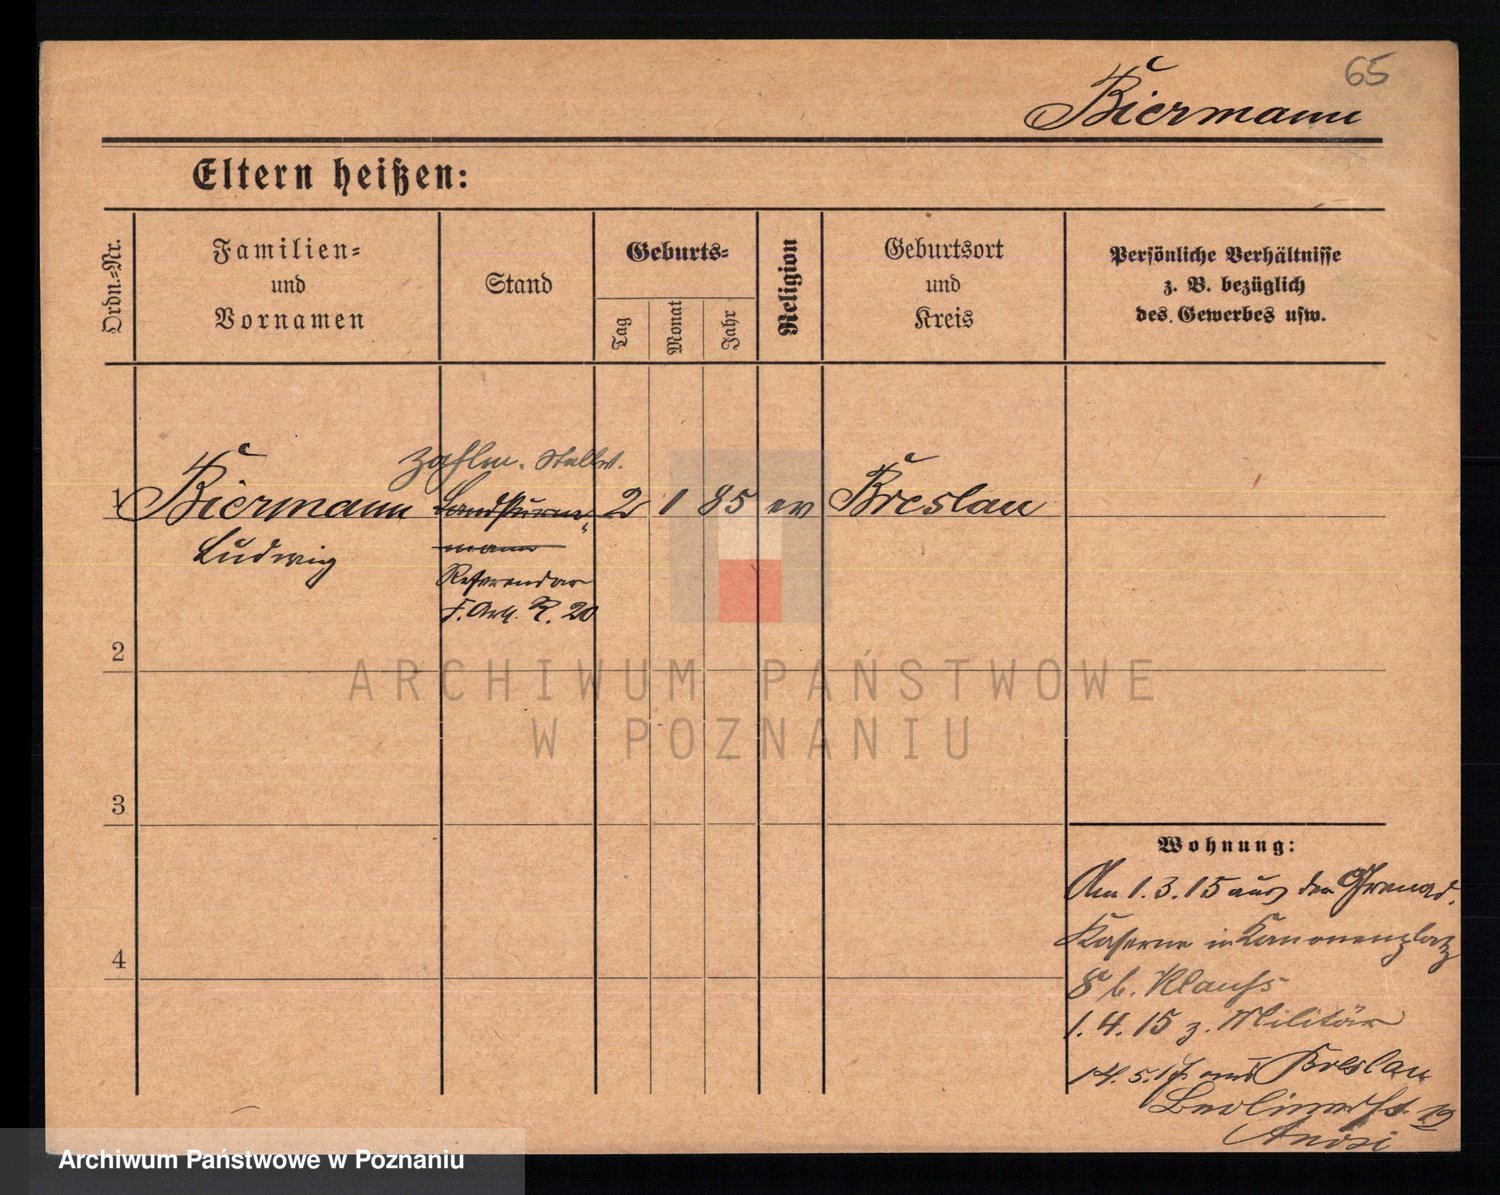 65
Biermann
Eltern heißen:
Ordn.-Nr.
Familien-
und
Vornamen
Stand
Geburts-
Tag
Monat
Jahr
Religion
Geburtsort
und
Kreis
Persönliche Verhältnisse
z. B. bezüglich
des Gewerbes usw.
Zahlm. Stellv.
1 Biermann Landsturm- 2 1 85 ev Breslau
Ludwig mann
Referendar
F. Art. R. 20
2
3
4
Wohnung:
Am 1.3.15 aus der Grenad.
Kaserne in Kanonenplatz
8 b. Klauss
1.4.15 z. Militär
14.5.17 aus Breslau
Berlinerst 19
ARCHIWUM PAŃSTWOWE
W POZNANIU
Archiwum Państwowe w Poznaniu